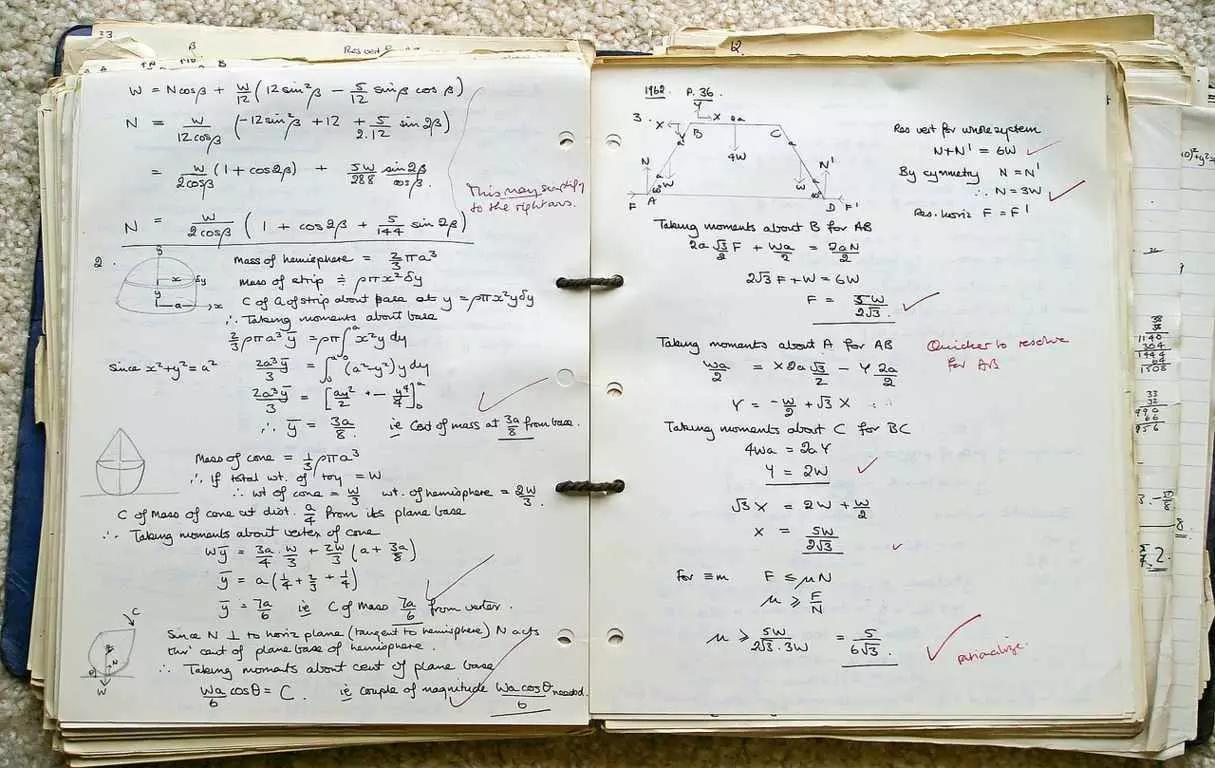 33
Res vert
W = N cosβ + W/12 (12 sin²β − 5/12 sinβ cosβ)
N = W/12cosβ (−12 sin²β + 12 + 5/2.12 sin 2β)
= W/2cosβ (1 + cos2β) + 5W/288 sin2β/cosβ.
This may simplify
to the right ans.
N = W/2cosβ (1 + cos2β + 5/144 sin 2β)
2.
y
x
δy
y
a
x
Mass of hemisphere = 2/3 πa³
Mass of strip ≑ ρπx²δy
C of G of strip about base at y = ρπx²yδy
∴ Taking moments about base
2/3 ρπa³ȳ = ρπ∫₀ᵃ x²y dy
Since x²+y² = a² 2a³ȳ/3 = ∫₀ᵃ (a²−y²)y dy
2a³ȳ/3 = [ay²/2 + − y⁴/4]₀ᵃ
∴ ȳ = 3a/8. ie Cent of mass at 3a/8 from base.
Mass of cone = 1/3 ρπa³
∴ If total wt. of toy = W
∴ wt of cone = W/3 wt. of hemisphere = 2W/3.
C of Mass of cone at dist. a/4 from its plane base
∴ Taking moments about vertex of cone
Wȳ = 3a/4 . W/3 + 2W/3 (a + 3a/8)
ȳ = a(1/4 + 2/3 + 1/4)
ȳ = 7a/6 ie C of Mass 7a/6 from vertex.
C
N
W
Since N ⊥ to horiz plane (tangent to hemisphere) N acts
thro' cent of plane base of hemisphere.
∴ Taking moments about cent of plane base
Wa/6 cosθ = C. ie couple of magnitude Wa cosθ/6 needed.
12.
1962. P. 36.
3.
Y
X
X
B
2a
C
4W
N
W
W
N'
60°
60°
F
A
D
F'
Res vert for whole system
N+N' = 6W
By symmetry N = N'
∴ N = 3W
Res. horiz F = F'
Taking moments about B for AB
2a √3/2 F + Wa/2 = 2aN/2
2√3 F + W = 6W
F = 5W/2√3.
Taking moments about A for AB
Quicker to resolve
for AB
Wa/2 = X 2a √3/2 − Y 2a/2
Y = −W/2 + √3 X
Taking moments about C for BC
4Wa = 2aY
Y = 2W
√3 X = 2W + W/2
X = 5W/2√3
for ≡m F ≤ μN
μ ≥ F/N
μ ≥ 5W/2√3.3W = 5/6√3.
rationalize.
38
38
1140
304
1444
64
1508
33
32
990
66
956